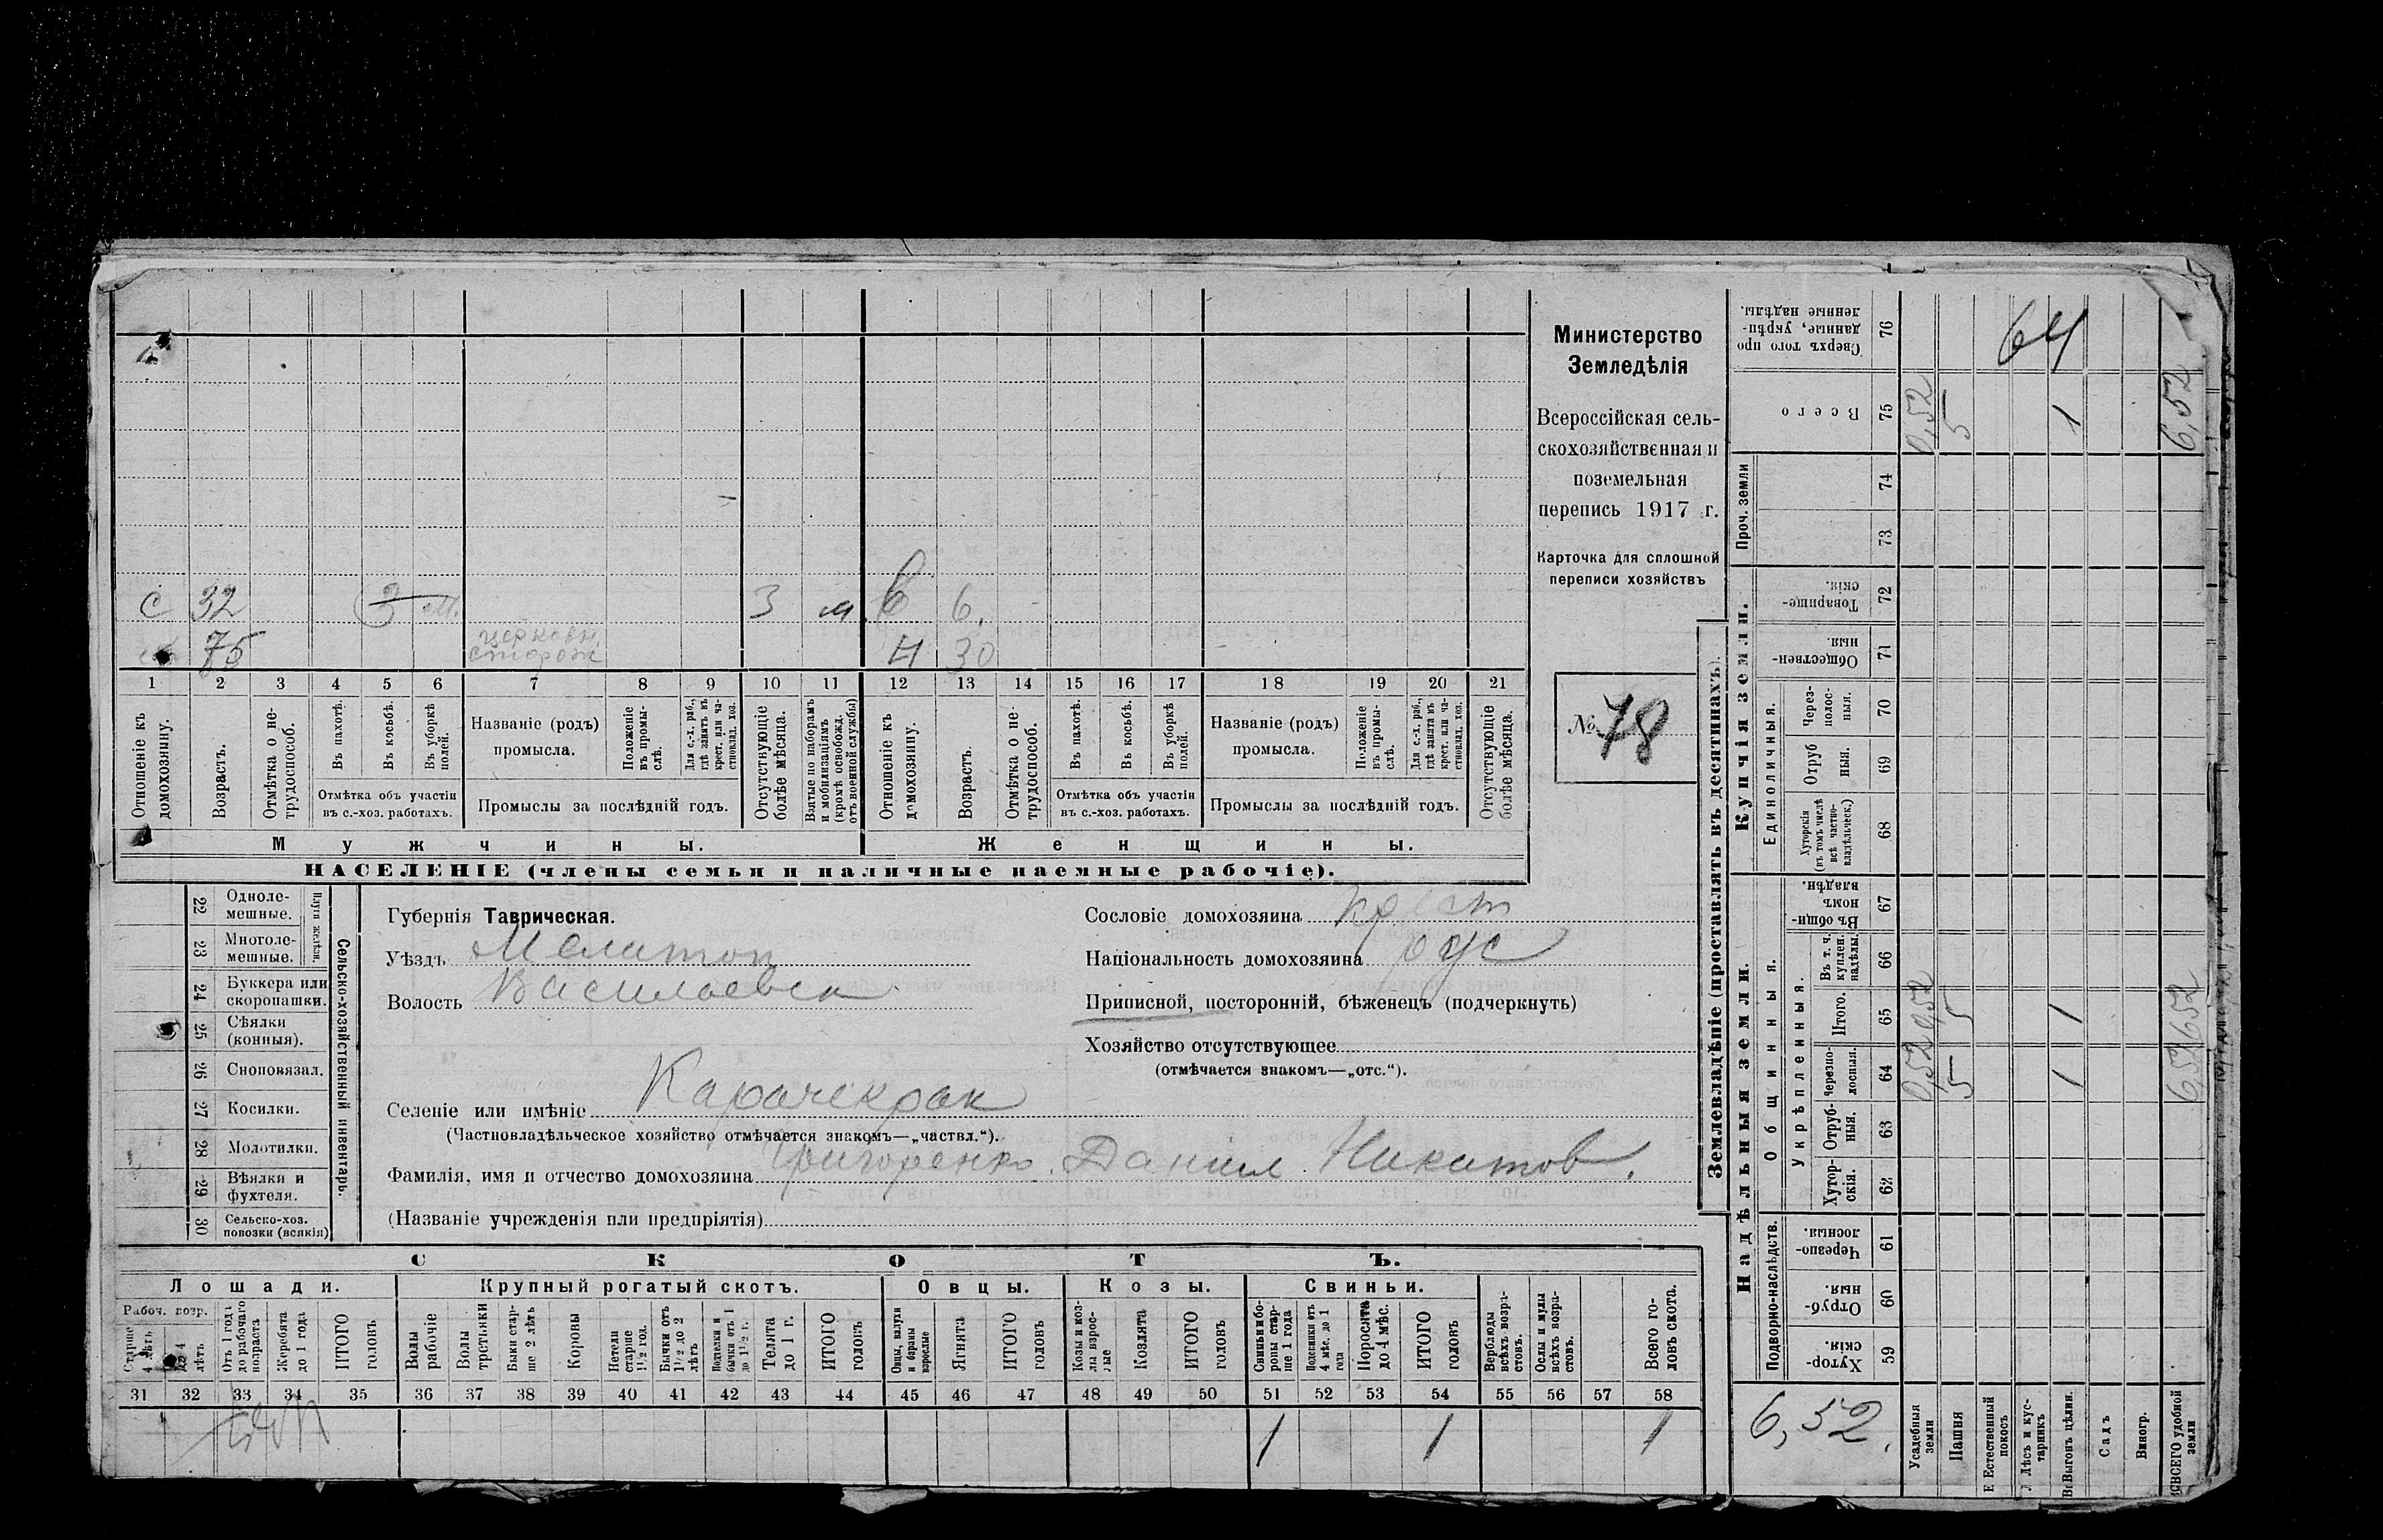 С 32 3 м. 3 м В 6.
75 церковн. сторож Н 30
1 2 3 4 5 6 7 8 9 10 11 12 13 14 15 16 17 18 19 20 21
Отношеніе къ домохозяину.
Возрастъ.
Отмѣтка о не-трудоспособ.
Въ пахотѣ.
Въ косьбѣ.
Въ уборкѣ полей.
Отмѣтка объ участіи
въ с.-хоз. работахъ.
Названіе (родъ)
промысла.
Положеніе въ промы-слѣ.
Для с.-х. раб., гдѣ занятъ въ крест. или ча-стновлад. хоз.
Промыслы за послѣдній годъ.
Отсутствующіе болѣе мѣсяца.
Взятые по наборамъ и мобилизаціямъ (кромѣ освобожд. отъ военной службы)
Отношеніе къ домохозяину.
Возрастъ.
Отмѣтка о не-трудоспособ.
Въ пахотѣ.
Въ косьбѣ.
Въ уборкѣ полей.
Отмѣтка объ участіи
въ с.-хоз. работахъ.
Названіе (родъ)
промысла.
Положеніе въ промы-слѣ.
Для с.-х. раб., гдѣ занята въ крест. или ча-стновлад. хоз.
Промыслы за послѣдній годъ.
Отсутствующіе болѣе мѣсяца.
Мужчины. Женщины.
НАСЕЛЕНІЕ (члены семьи и наличные наемные рабочіе).
Министерство
Земледѣлія
Всероссійская сель-
скохозяйственная и
поземельная
перепись 1917 г.
Карточка для сплошной
переписи хозяйствъ
№ 78
22 Одноле-мешные.
23 Многоле-мешные.
Плуги желѣзн.
24 Буккера или скоропашки.
25 Сѣялки (конныя).
26 Сноповязал.
27 Косилки.
28 Молотилки.
29 Вѣялки и фухтеля.
30 Сельско-хоз. повозки (всякія)
Сельско-хозяйственный инвентарь.
Губернія Таврическая.
Уѣздъ Мелитоп
Волость Васильевск
Сословіе домохозяина крест
Національность домохозяина рус
Приписной, посторонній, бѣженецъ (подчеркнуть)
Хозяйство отсутствующее
(отмѣчается знакомъ—„отс.“).
Селеніе или имѣніе Карачекрак
(Частновладѣльческое хозяйство отмѣчается знакомъ—„частвл.“).
Фамилія, имя и отчество домохозяина Григоренко. Данил Никитов.
(Названіе учрежденія или предпріятія)
СКОТЪ.
Лошади. Крупный рогатый скотъ. Овцы. Козы. Свиньи.
Рабоч. возр.
Старше 4 лѣтъ
До 4 лѣтъ
Отъ 1 года до рабочаго возраста
Жеребята до 1 года
ИТОГО головъ
Волы рабочіе
Волы третьяки
Быки стар-ше 2 лѣтъ
Коровы
Нетели старше 1½ год.
Бычки отъ 1½ до 2 лѣтъ
Подтелки и бычки отъ 1 до 1½ г.
Телята до 1 г.
ИТОГО головъ
Овцы, валухи и бараны взрослые
Ягнята
ИТОГО головъ
Козы и коз-лы взрос-лые
Козлята
ИТОГО головъ
Свиньи и бо-ровы стар-ше 1 года
Подсвинки отъ 4 мѣс. до 1 года
Поросята до 4 мѣс.
ИТОГО головъ
Верблюды всѣхъ возра-стовъ.
Ослы и мулы всѣхъ возра-стовъ.
Всего го-ловъ скота.
31 32 33 34 35 36 37 38 39 40 41 42 43 44 45 46 47 48 49 50 51 52 53 54 55 56 57 58
1 1 1
Землевладѣніе (проставлять въ десятинахъ).
Купчія земли.
Надѣльныя земли.
76 Сверхъ того про-данные, укрѣп-ленные надѣлы. 64
75 Всего 0,52 5 1 6,52
Проч. земли
74
73
72 Товарище-скія.
71 Обществен-ныя.
Единоличныя.
70 Через-полос-ныя.
69 Отруб-ныя.
68 Хуторскія (въ томъ числѣ всѣ частно-владѣльческ.)
Общинныя.
67 Въ общин-номъ владѣн.
Укрѣпленныя.
66 Въ т. ч. куплен. надѣлы.
65 Итого. 0,52 5 1 6,52
64 Черезпо-лосныя. 0,52 5 1 6,52
63 Отруб-ныя.
62 Хутор-скія.
Подворно-наслѣдств.
61 Черезпо-лосныя
60 Отруб-ныя.
59 Хутор-скія.
6,52.
Усадебныя земли
Пашня
Естественный покосъ
Лѣсъ и кус-тарникъ
Выгонъ цѣлин.
Садъ
Виногр.
ВСЕГО удобной земли